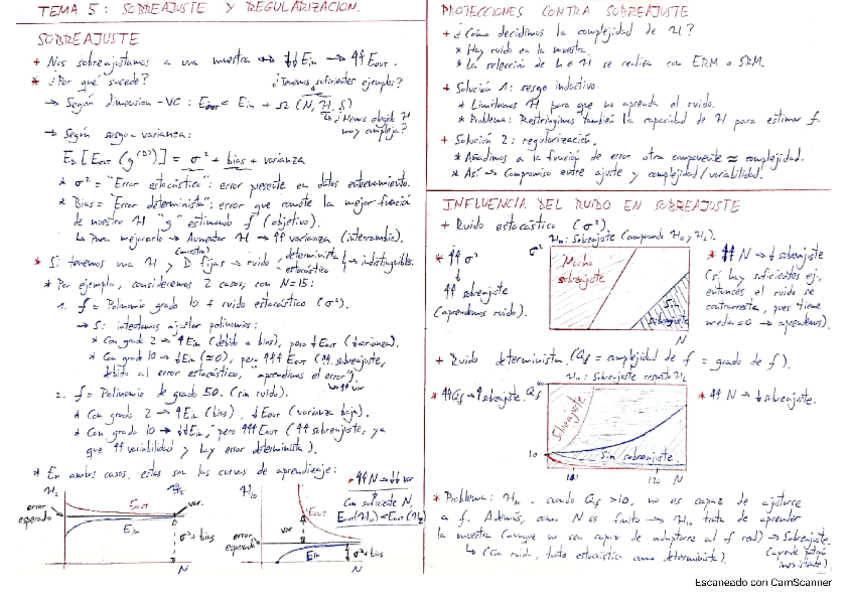 TEMA 5: SOBREAJUSTE Y REGULARIZACION.
SOBREAJUSTE
+ Nos sobreajustamos a una muestra ↔ ↓↓ Ein → ↑↑ Eout.
* ¿Por qué sucede? ¿Tenemos suficientes ejemplos?
→ Según dimension-VC: Eout ≤ Ein + Ω (N, H, δ)
↳ ¿Hemos elegido H muy compleja?
→ Según sesgo-varianza:
ED [Eout (g(D))] = σ² + bias + varianza
* σ² = "Error estocástico": error presente en datos entrenamiento.
* Bias = "Error determinista": error que comete la mejor función
de nuestro H "g" estimando f (objetivo).
↳ Para mejorarlo → Aumentar H → ↑↑ varianza (intercambio).
(muestra)
* Si tenemos una H y D fijas → ruido, determinista estocástico → indistinguibles.
* Por ejemplo, consideremos 2 casos; con N=15:
1. f = Polinomio grado 10 + ruido estocástico (σ²).
→ Si intentamos ajustar polinomios:
* Con grado 2 → ↑Ein (debido a bias), pero ↓Eout (↓varianza).
* Con grado 10 → ↓Ein (≈0), pero ↑↑↑ Eout (↑↑ sobreajuste,
debido al error estocástico, "aprendimos el error").
↳ ↑↑ var
2. f = Polinomio de grado 50. (sin ruido).
* Con grado 2 → ↑Ein (bias), ↓Eout (varianza baja).
* Con grado 10 → ↓↓Ein, pero ↑↑↑ Eout (↑↑ sobreajuste, ya
que ↑↑ variabilidad y hay error determinista).
* En ambos casos, estas son las curvas de aprendizaje:
* ↑↑ N → ↓↓ var
Con suficiente N,
Eout(H10) < Eout(H2)
H2
error esperado
Eout
Ein
var.
σ² + bias
N
H10
error esperado
var
Eout
Ein
σ² + bias
N
PROTECCIONES CONTRA SOBREAJUSTE
+ ¿Cómo decidimos la complejidad de H?
* Hay ruido en la muestra.
* La selección de h ∈ H se realiza con ERM o SRM.
+ Solución 1: sesgo inductivo.
* Limitemos H para que no aprenda el ruido.
* Problema: Restringimos también la capacidad de H para estimar f.
+ Solución 2: regularización.
* Añadimos a la función de error otra componente ≈ complejidad.
* Así → Compromiso entre ajuste y complejidad/variabilidad.
INFLUENCIA DEL RUIDO EN SOBREAJUSTE
+ Ruido estocástico (σ²)
H10: Sobreajuste (comparando H10 y H2).
* ↑↑ σ²
↓
↑↑ sobreajuste
(aprendemos ruido).
σ²
Mucho sobreajuste
Sin sobreajuste
N
* ↑↑ N → ↓ sobreajuste
(si hay suficientes ej.,
entonces el ruido se
contrarresta, pues tiene
media = 0 → aprendemos).
+ Ruido determinista (Qf = complejidad de f = grado de f).
H10: Sobreajuste respecto H2
* ↑↑Qf → ↑ sobreajuste.
Qf
Sobreajuste
Sin sobreajuste
10
120
N
* ↑↑ N → ↓ sobreajuste.
* Problema: H10. cuando Qf > 10, no es capaz de ajustarse
a f. Además, como N es finito → H10 trata de aprender
la muestra (aunque no sea capaz de adaptarse al f real) → Sobreajuste.
↳ (con ruido, tanto estocástico como determinista).
Escaneado con CamScanner